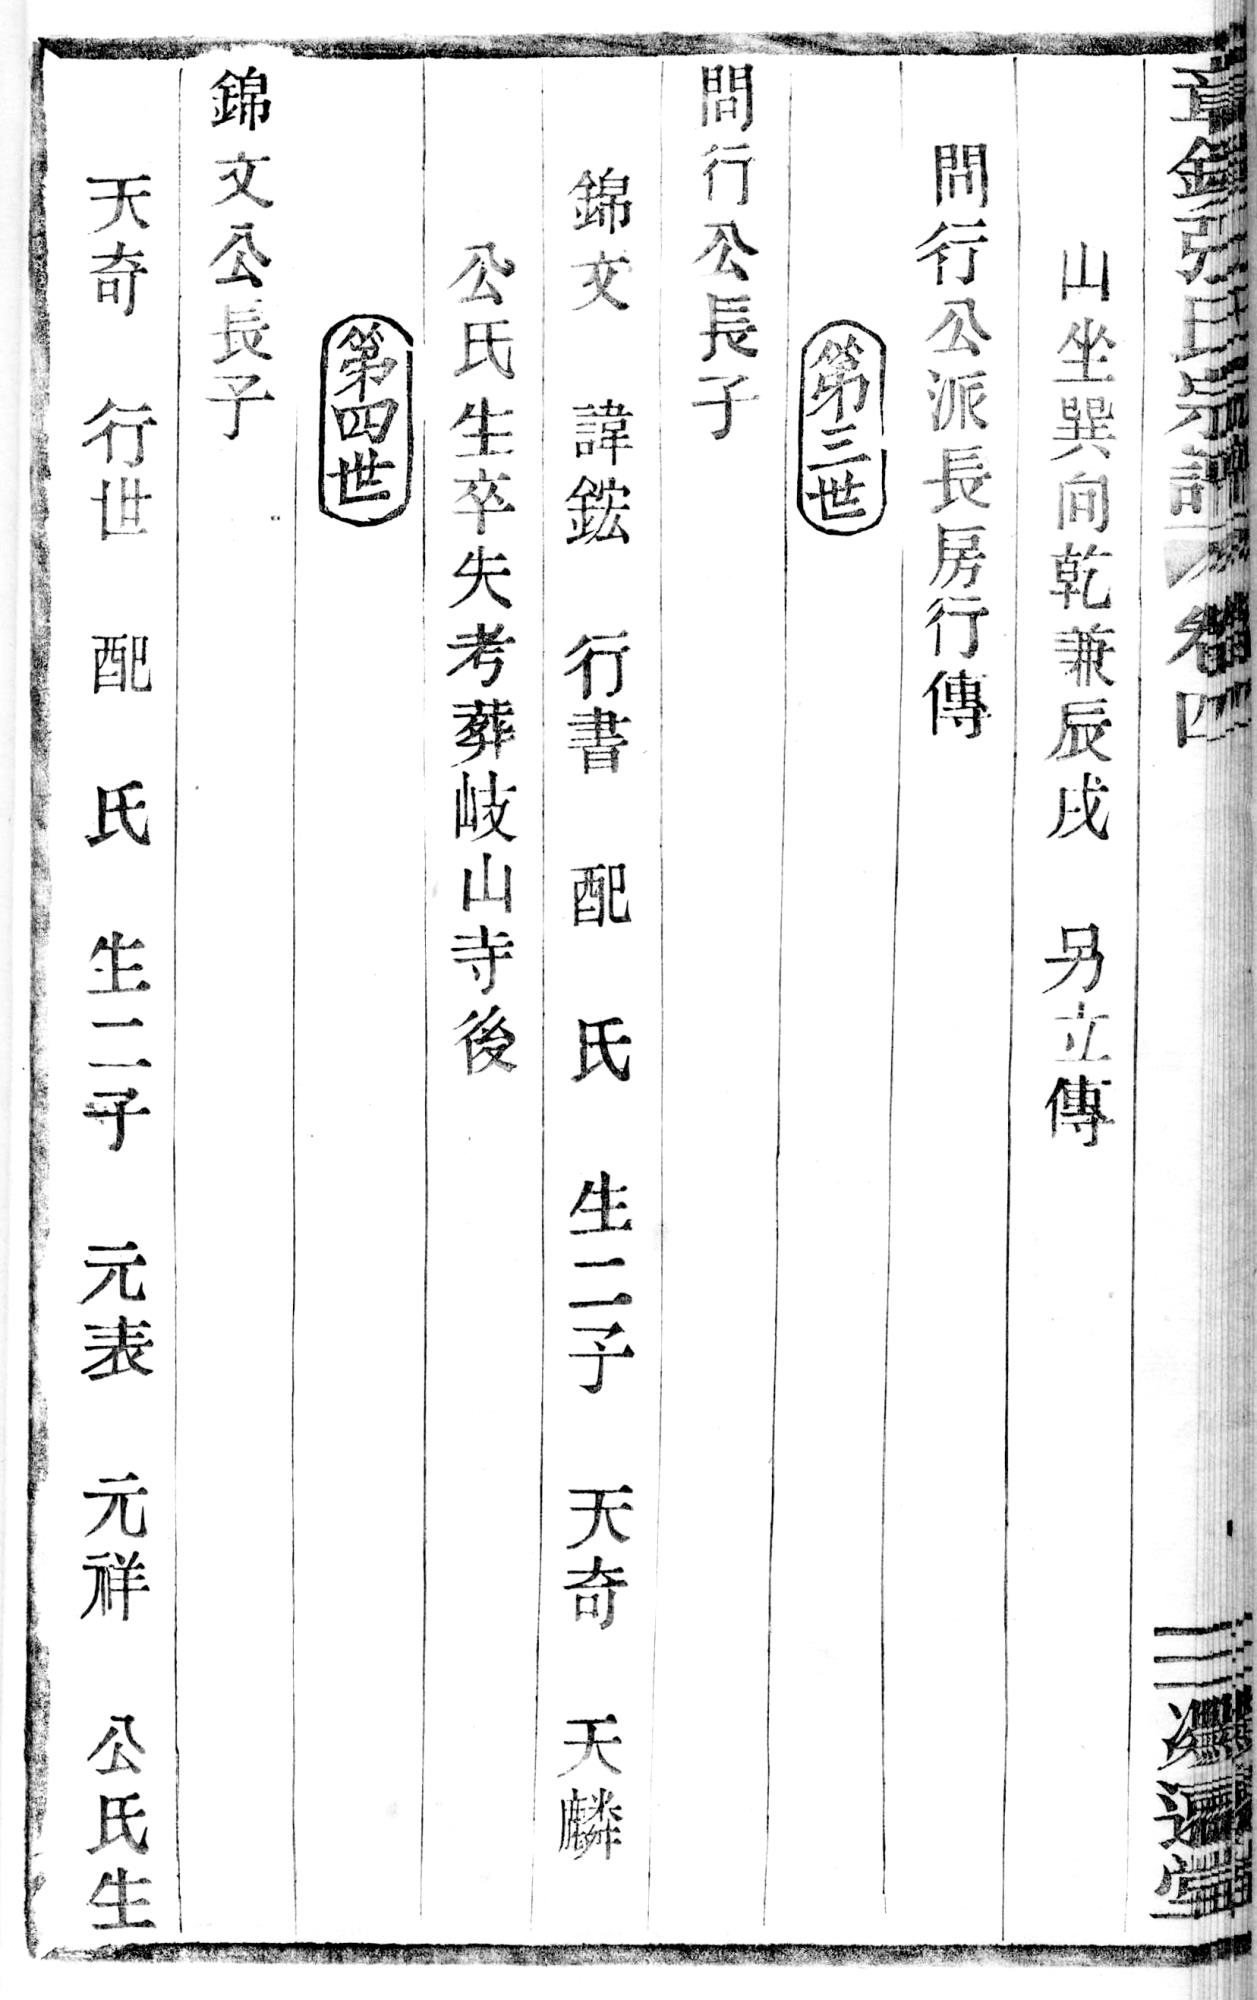 張氏宗譜 卷四
山坐巽向乾兼辰戌　另立傳
問行公派長房行傳
第三世
問行公長子
錦文　諱鋐　行書　配　氏　生二子　天奇　天麟
公氏生卒失考葬岐山寺後
第四世
錦文公長子
天奇　行世　配　氏　生二子　元表　元祥　公氏生